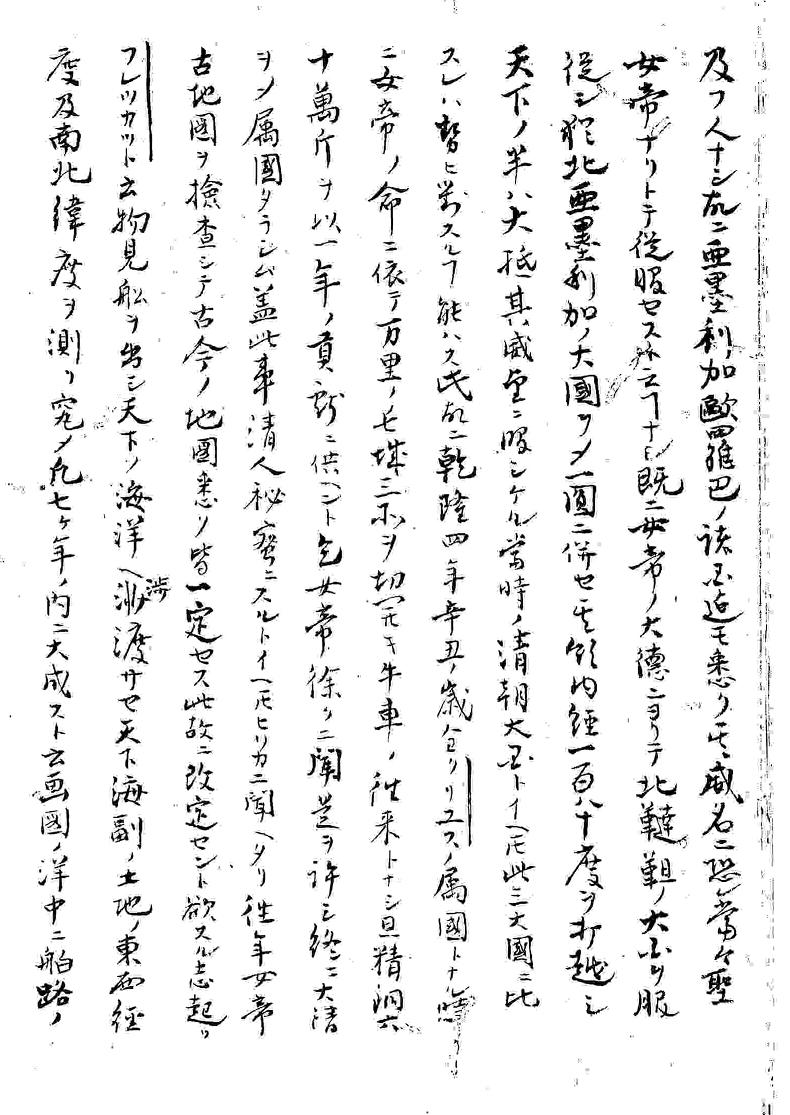 及フ人ナシ故ニ亜墨利加歐羅巴ノ諸国迠モ悉ク其威名ニ恐常々聖
女帝ナリトテ従服セス外立コトナシ既ニ女帝ノ大德ニヨリテ北韃靼ノ大小ヲ服
従シ從北亜墨利加ノ大國ヲメ一圓ニ併セ其領内經一百八十度ヲ打越シ
天下ノ半ハ大抵其威望ニ服シケル當時ノ清朝大国トイヘ圧此三大國ニ比
スレハ勢ヒ對スルコト能ハス氐故ニ乾隆四年辛丑ノ歳ヲロリユスノ属國トナル
ニ女帝ノ命ニ依テ万里ノ長城三ヶ所ヲ切開キ牛車ノ徃来トナシ且精洞六
十萬斤ヲ以一年ノ貢獻ニ供ヘント乞女帝徐クニ聞是ヲ許シ終ニ大清
ヲメ属國タラシム蓋此事清人秘密ニスルトイヘ圧ヒソカニ聞ヘタリ徃年女帝
古地圖ヲ撿查シテ古今ノ地圖悉ク皆一定セス此故ニ改定セント欲スル志起リ
フレツカツト云物見舩ヲ出シ天下ノ海洋ヘ渉渡サセ天下海副ノ土地ノ東西經
度及南北緯度ヲ測リ究メ凢七ヶ年ノ内ニ大成スト云画圖ノ洋中ニ舶路ノ